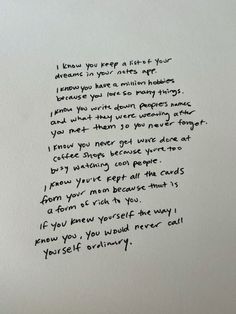 I know you keep a list of your
dreams in your notes app.
I know you have a million hobbies
because you love so many things.
I know you write down people's names
and what they were wearing after
you met them so you never forget.
I know you never get work done at
coffee shops because you're too
busy watching cool people.
I know you've kept all the cards
from your mom because that is
a form of rich to you.
If you knew yourself the way I
know you, you would never call
yourself ordinary.